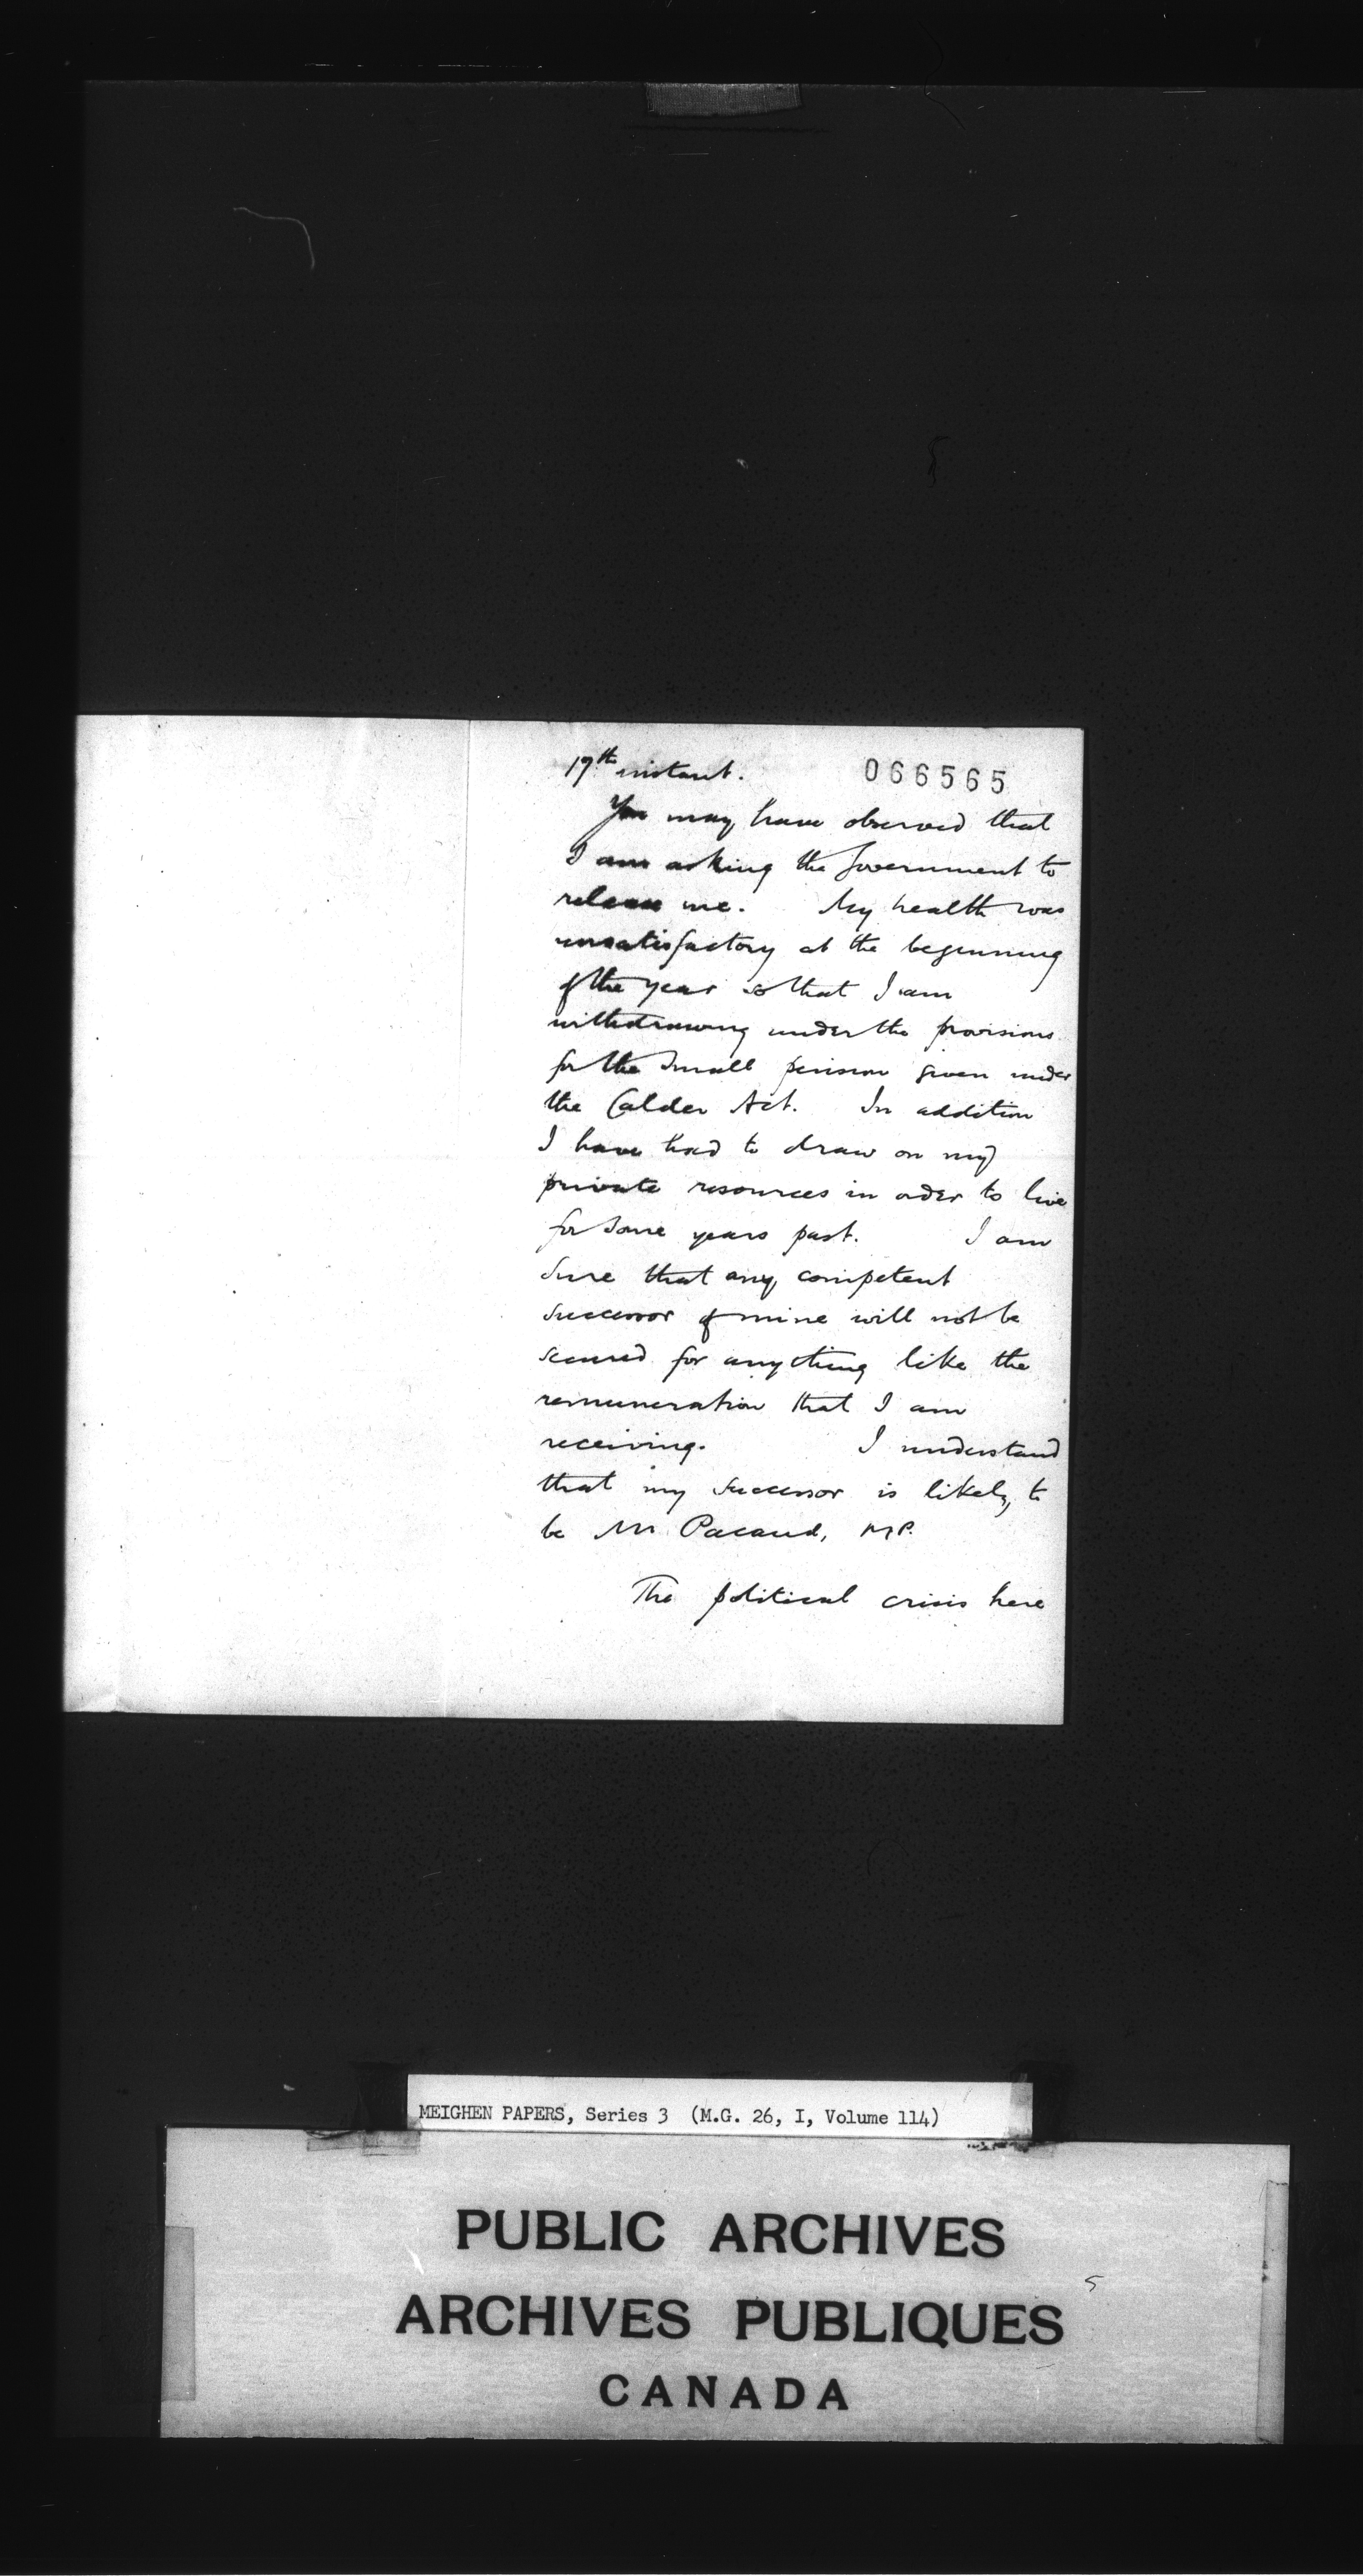 066565
19th instant.
You may have observed that
I am asking the Government to
release me. My health was
unsatisfactory at the beginning
of the year so that I am
withdrawing under the provisions
for the small pension given under
the Calder Act. In addition
I have had to draw on my
private resources in order to live
for some years past. I am
sure that any competent
successor of mine will not be
secured for anything like the
remuneration that I am
receiving. I understand
that my successor is likely to
be Mr Pacaud, MP.
The political crisis here
MEIGHEN PAPERS, Series 3 (M.G. 26, I, Volume 114)
PUBLIC ARCHIVES
ARCHIVES PUBLIQUES
CANADA